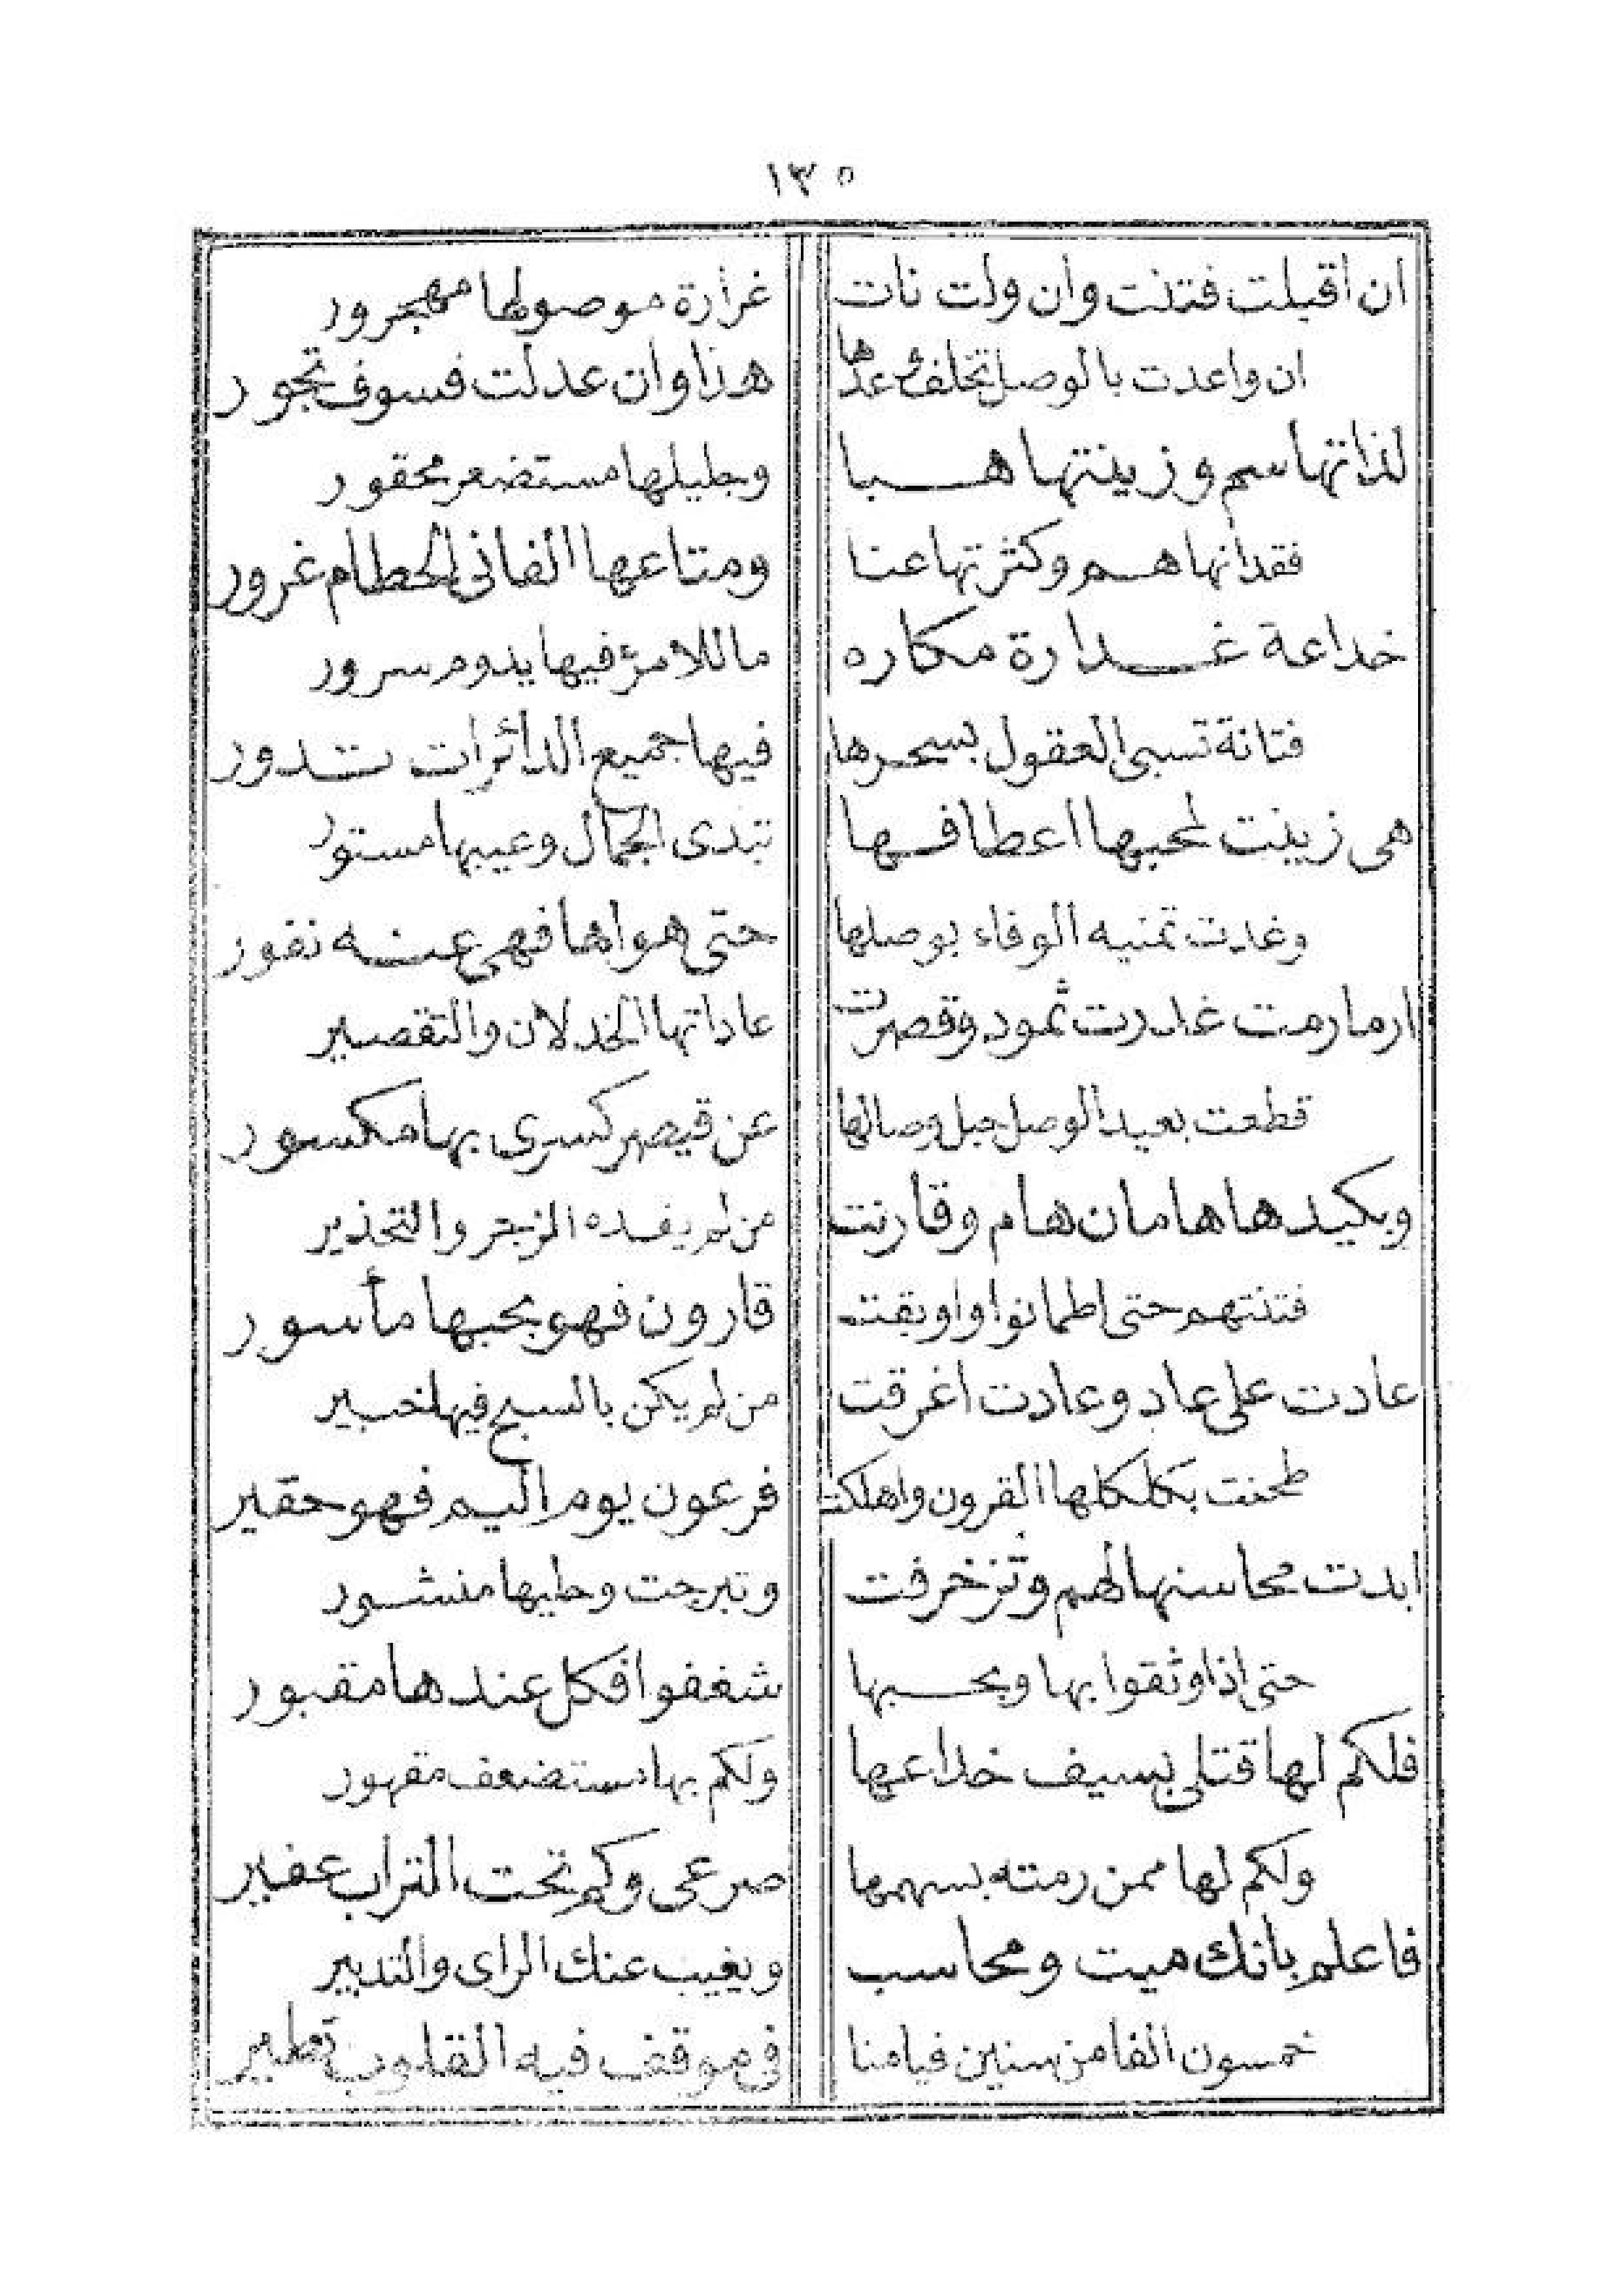 ١٣٥
ان اقبلت فتنت وان ولت نات غرارة موصولها مهجور
ان واعدت بالوصل تخلف عدها هذا وان عدلت فسوف تجور
لذاتها سم وزينتها هبا وجليلها مستضعر محقور
فقدانها هم وكثرتها عنا ومتاعها الفانى الحطام غرور
خداعة غدارة مكاره ماللامرؤ فيها يدوم سرور
فتانة تسبى العقول بسحرها فيها جميع الدائرات تدور
هى زينت لمحبها اعطافها تبدى الجمال وعيبها مستور
وغدت تمنيه الوفاء بوصلها حتى هواها فهى عنه نفور
ارما رمت غدرت ثمود وقصرت عاداتها الخدلان والتقصير
قطعت بعيد الوصل حبل وصالها عن قيصر كسرى بها مكسور
وبكيدها هامان هام وقارنت من لم يفده الزجر والتحذير
فتنتهم حتى اطمانوا واوبقت قارون فهو بحبها مأسور
عادت على عاد وعادت اغرقت من لم يكن بالسبح فيها خبير
طحنت بكلكلها القرون واهلكت فرعون يوم اليم فهو حقير
ابدت محاسنها لهم وتزخرفت وتبرجت وحليها منشور
حتى اذا وثقوا بها وبحسبها شغفوا فكل عندها مقبور
فلكم لها قتلى بسيف خداعها ولكم بها مستضعف مقهور
ولكم لها ممن رمته بسهمها صرعى وكم تحت التراب عفير
فاعلم بانك ميت ومحاسب ويغيب عنك الراى والتدبير
خمسون الفا من سنين فيامنا فى موقف فيه القلوب تطير